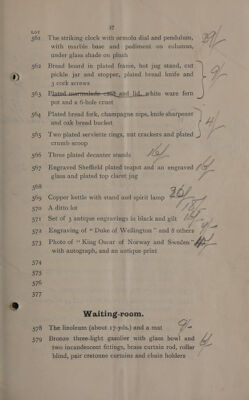 37
LOT
361 The striking clock with ormolu dial and pendulum,
with marble base and pediment on column,
under glass shade on plush
362 Bread board in plated frame, hot jug stand, cut
pickle jar and stopper, plated bread knife and
3 cork screws
363 Plated marmalade, and lid, white ware fern
pot and a 6-hole cruet
364 Plated bread fork, champagne nips, knife sharpener
and oak bread bucket
365 Two plated serviette rings, nut crackers and plated
crumb scoop
366 Three plated decanter stands
367 Engraved Sheffield plated teapot and an engraved
glass and plated top claret jug
368
369 Copper kettle with stand and spirit lamp
370 A ditto lot
371 Set of 3 antique engravings in black and gilt
572 Engraving of "Duke of Wellington" and 8 others
573 Photo of "King Oscar of Norway and Sweden"
with autograph, and an antique print
374
375
376
377
Waiting-room.
578 The linoleum (about 17-yds.) and a mat
579 Bronze three-light gaselier with glass bowl and
two incandescent fittings, brass curtain rod, roller
blind, pair cretonne curtains and chain holders